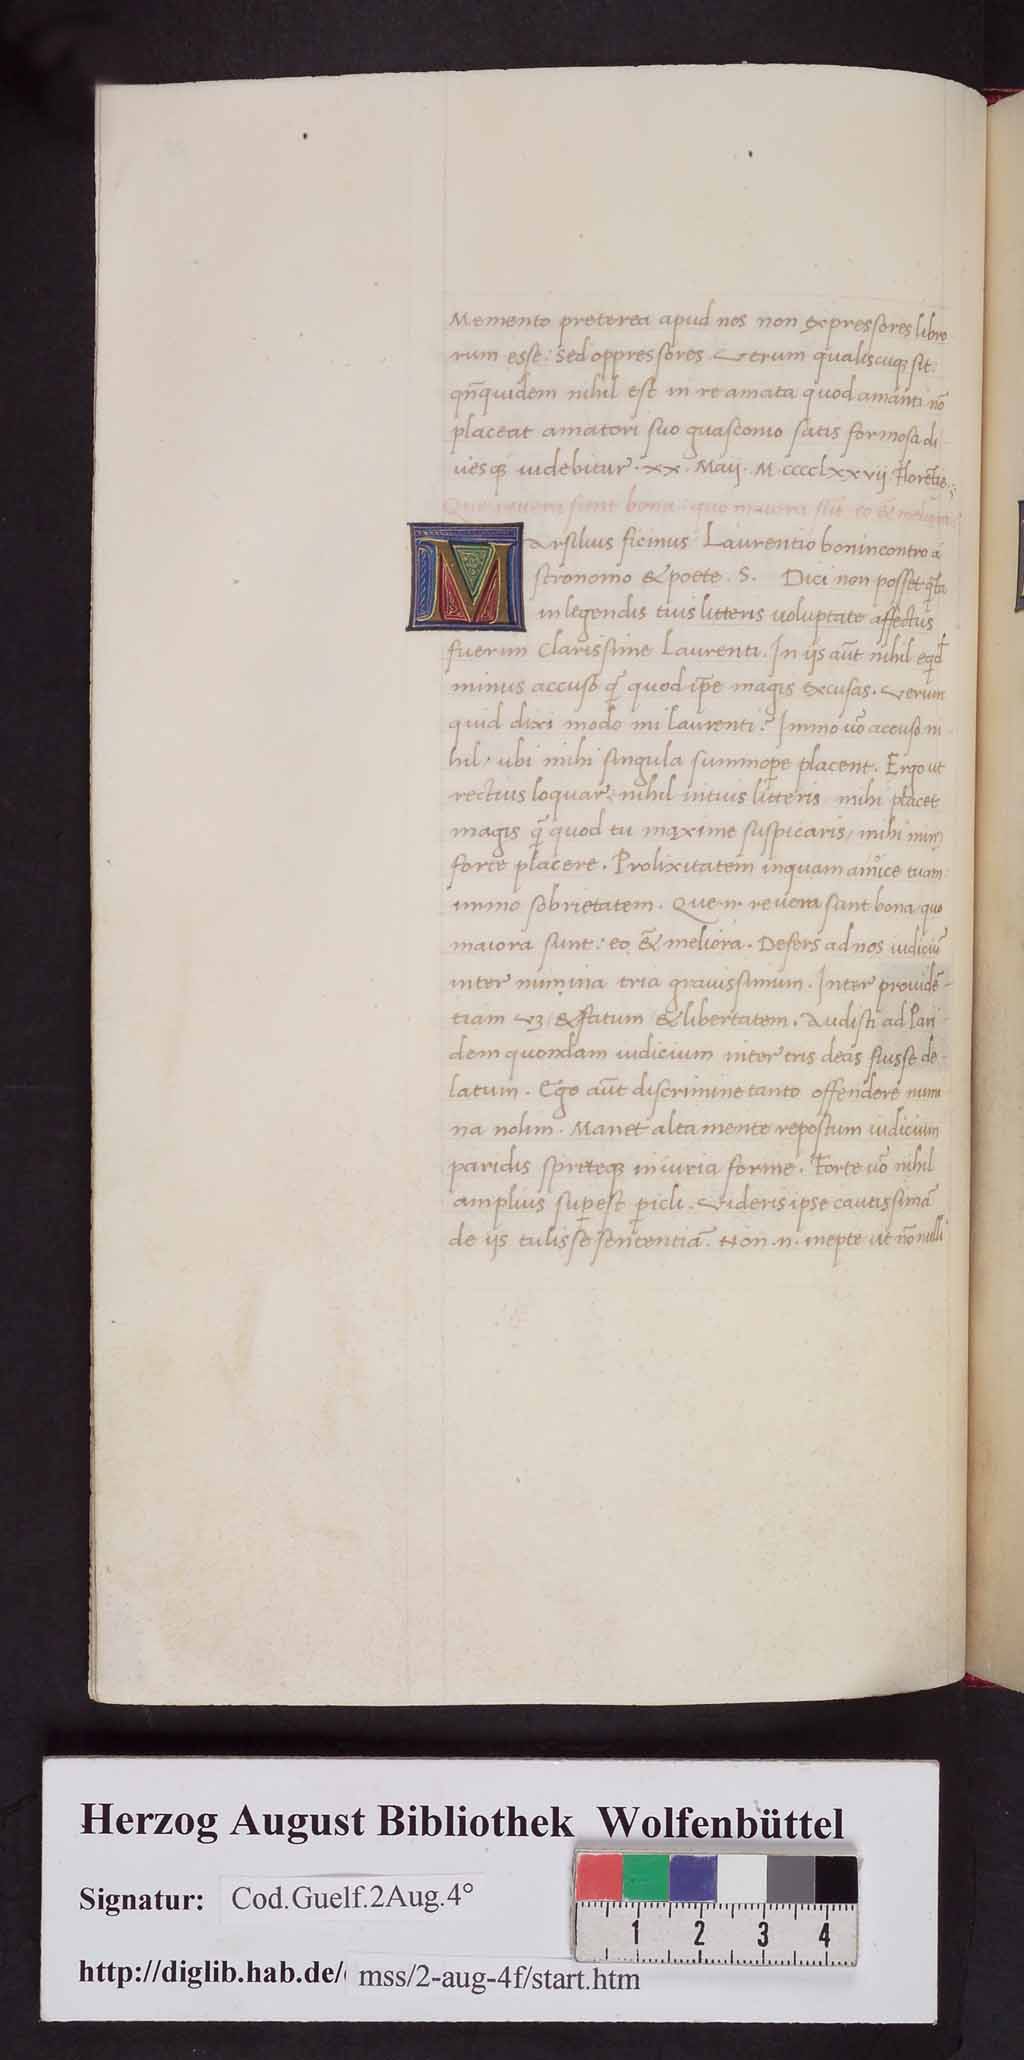 Memento preterea apud nos non expressores libro
rum esse: sed oppressores. Verum qualiscuqȝ sit.
qn̄quidem nihil est in re amata quod amanti nō
placeat amatori suo guasconio satis formosa di
uesqȝ uidebitur. xx. Maij. M cccclxxvij Florētie.
Que reuera sunt bona: quo maiora sūt eo & meliora
MArsilius ficinus Laurentio bonincontro a
stronomo & poete. S. Dici non posset q̄ta
in legendis tuis litteris uoluptate affectus
fuerim Clarissime Laurenti. In ijs aūt nihil eqd̄
minus accuso q̄ quod ip̄e magis excusas. Verum
quid dixi modo mi laurenti? Immo uō accuso ni
hil, ubi mihi singula summope placent. Ergo ut
rectius loquar: nihil in tuis litteris mihi placet
magis q̄ quod tu maxime suspicaris, mihi min
forte placere. Prolixitatem inquam amice tuam
immo sobrietatem. Que .n. reuera sunt bona quo
maiora sunt: eo & meliora. Defers ad nos iudiciū
inter numina tria grauissimum. Inter prouidē-
tiam vȝ & fatum & libertatem. Audisti ad Pari
dem quondam iudicium inter tris deas fuisse de-
latum. Ego aūt discrimine tanto offendere numi
na nolim. Manet alta mente repostum iudicium
paridis spreteqȝ iniuria forme. Forte uō nihil
amplius supest picli. Videris ipse cautissimā
de ijs tulisse sententiā. Non .n. inepte ut nōnulli
Herzog August Bibliothek Wolfenbüttel
Signatur: Cod.Guelf.2Aug.4°
1 2 3 4
http://diglib.hab.de/ mss/2-aug-4f/start.htm